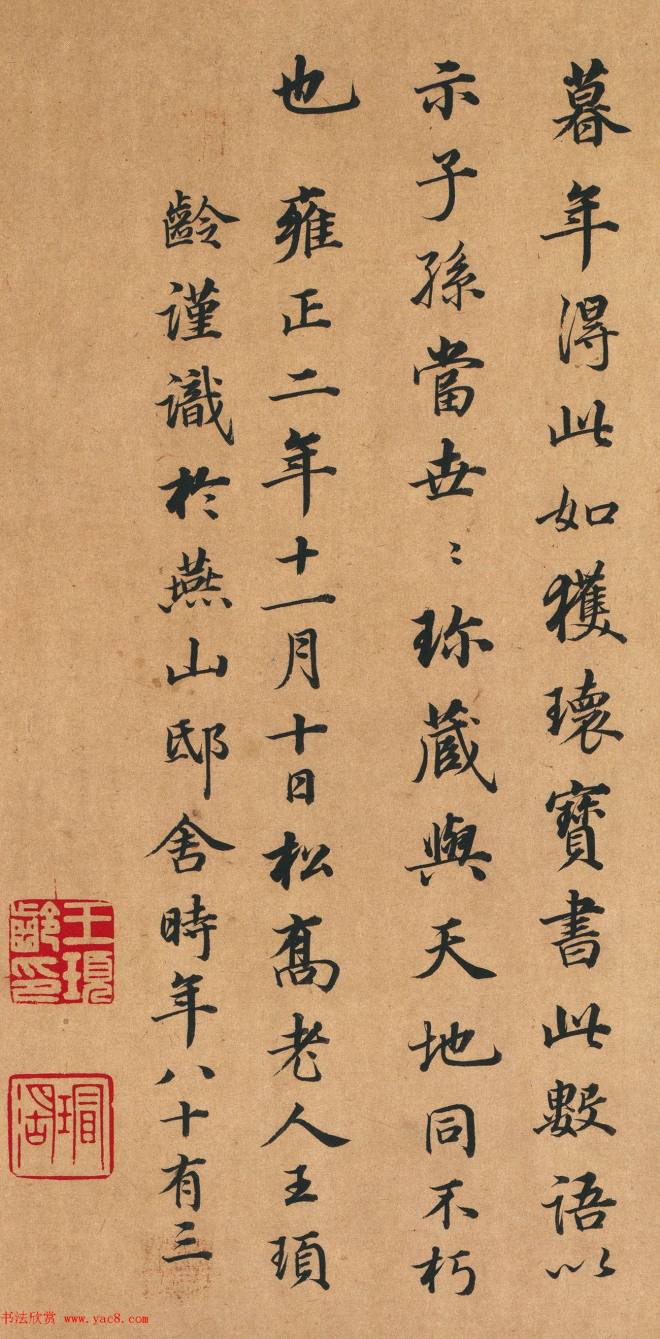 暮年得此如獲瓌寶書此數語以
示子孫當世〻珎藏與天地同不朽
也 雍正二年十一月十日松喬老人王頊
齡謹識於燕山邸舍時年八十有三
王頊齡印
书法欣赏 www.yac8.com